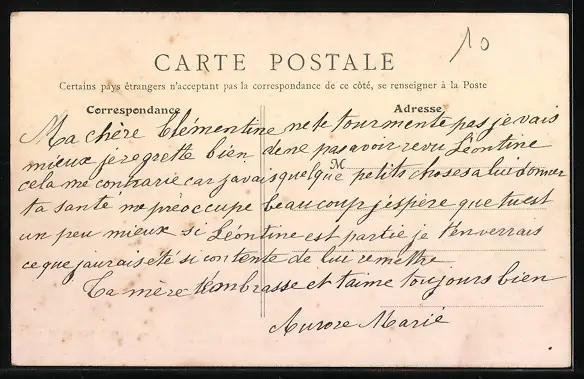 10
CARTE POSTALE
Certains pays étrangers n'acceptant pas la correspondance de ce côté, se renseigner à la Poste
Correspondance
Adresse
M
Ma chère Clémentine ne te tourmente pas je vais
mieux je regrette bien de ne pas avoir revu Léontine
cela me contrarie car javais quelque petits choses a lui donner
ta santé me préoccupe beaucoup j'espère que tu est
un peu mieux si Léontine est partie je t'enverrais
ce que jaurais été si contente de lui remettre
Ta mère t'embrasse et t'aime toujours bien
Aurore Marie